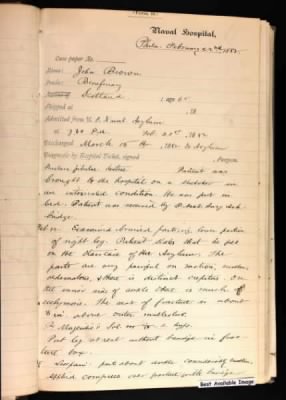 (Form 10.)
Naval Hospital,
Phila. February 22nd, 1882.
Case paper No.
Name: John Brown
Rank: Beneficiary
Nativity Scotland , age 65
Shipped at , 18
Admitted from U.S. Naval Asylum
at 7.30 P.M. Feb. 22d, 1882
Discharged March 15th, 1882 to Asylum
Diagnosis by Hospital Ticket, signed , Surgeon.
Patient was
brought to the hospital on a stretcher in
an intoxicated condition. He was put in
bed. Patient was received by
bridge.
Examined bruised parts, lower portion
of right leg. Patient states that he fell
on the staircase of the Asylum. The
parts are very painful on motion, swollen,
oedematous, & there is distinct crepitus. On
the inner side of ankle there is much
ecchymosis. The seat of fracture is about
in above outer malleolus.
Magendie's Sol.
Put leg at rest without bandage in frac-
ture box.
put about ankle considerably swollen,
applied compress over with bandage
Best Available Image